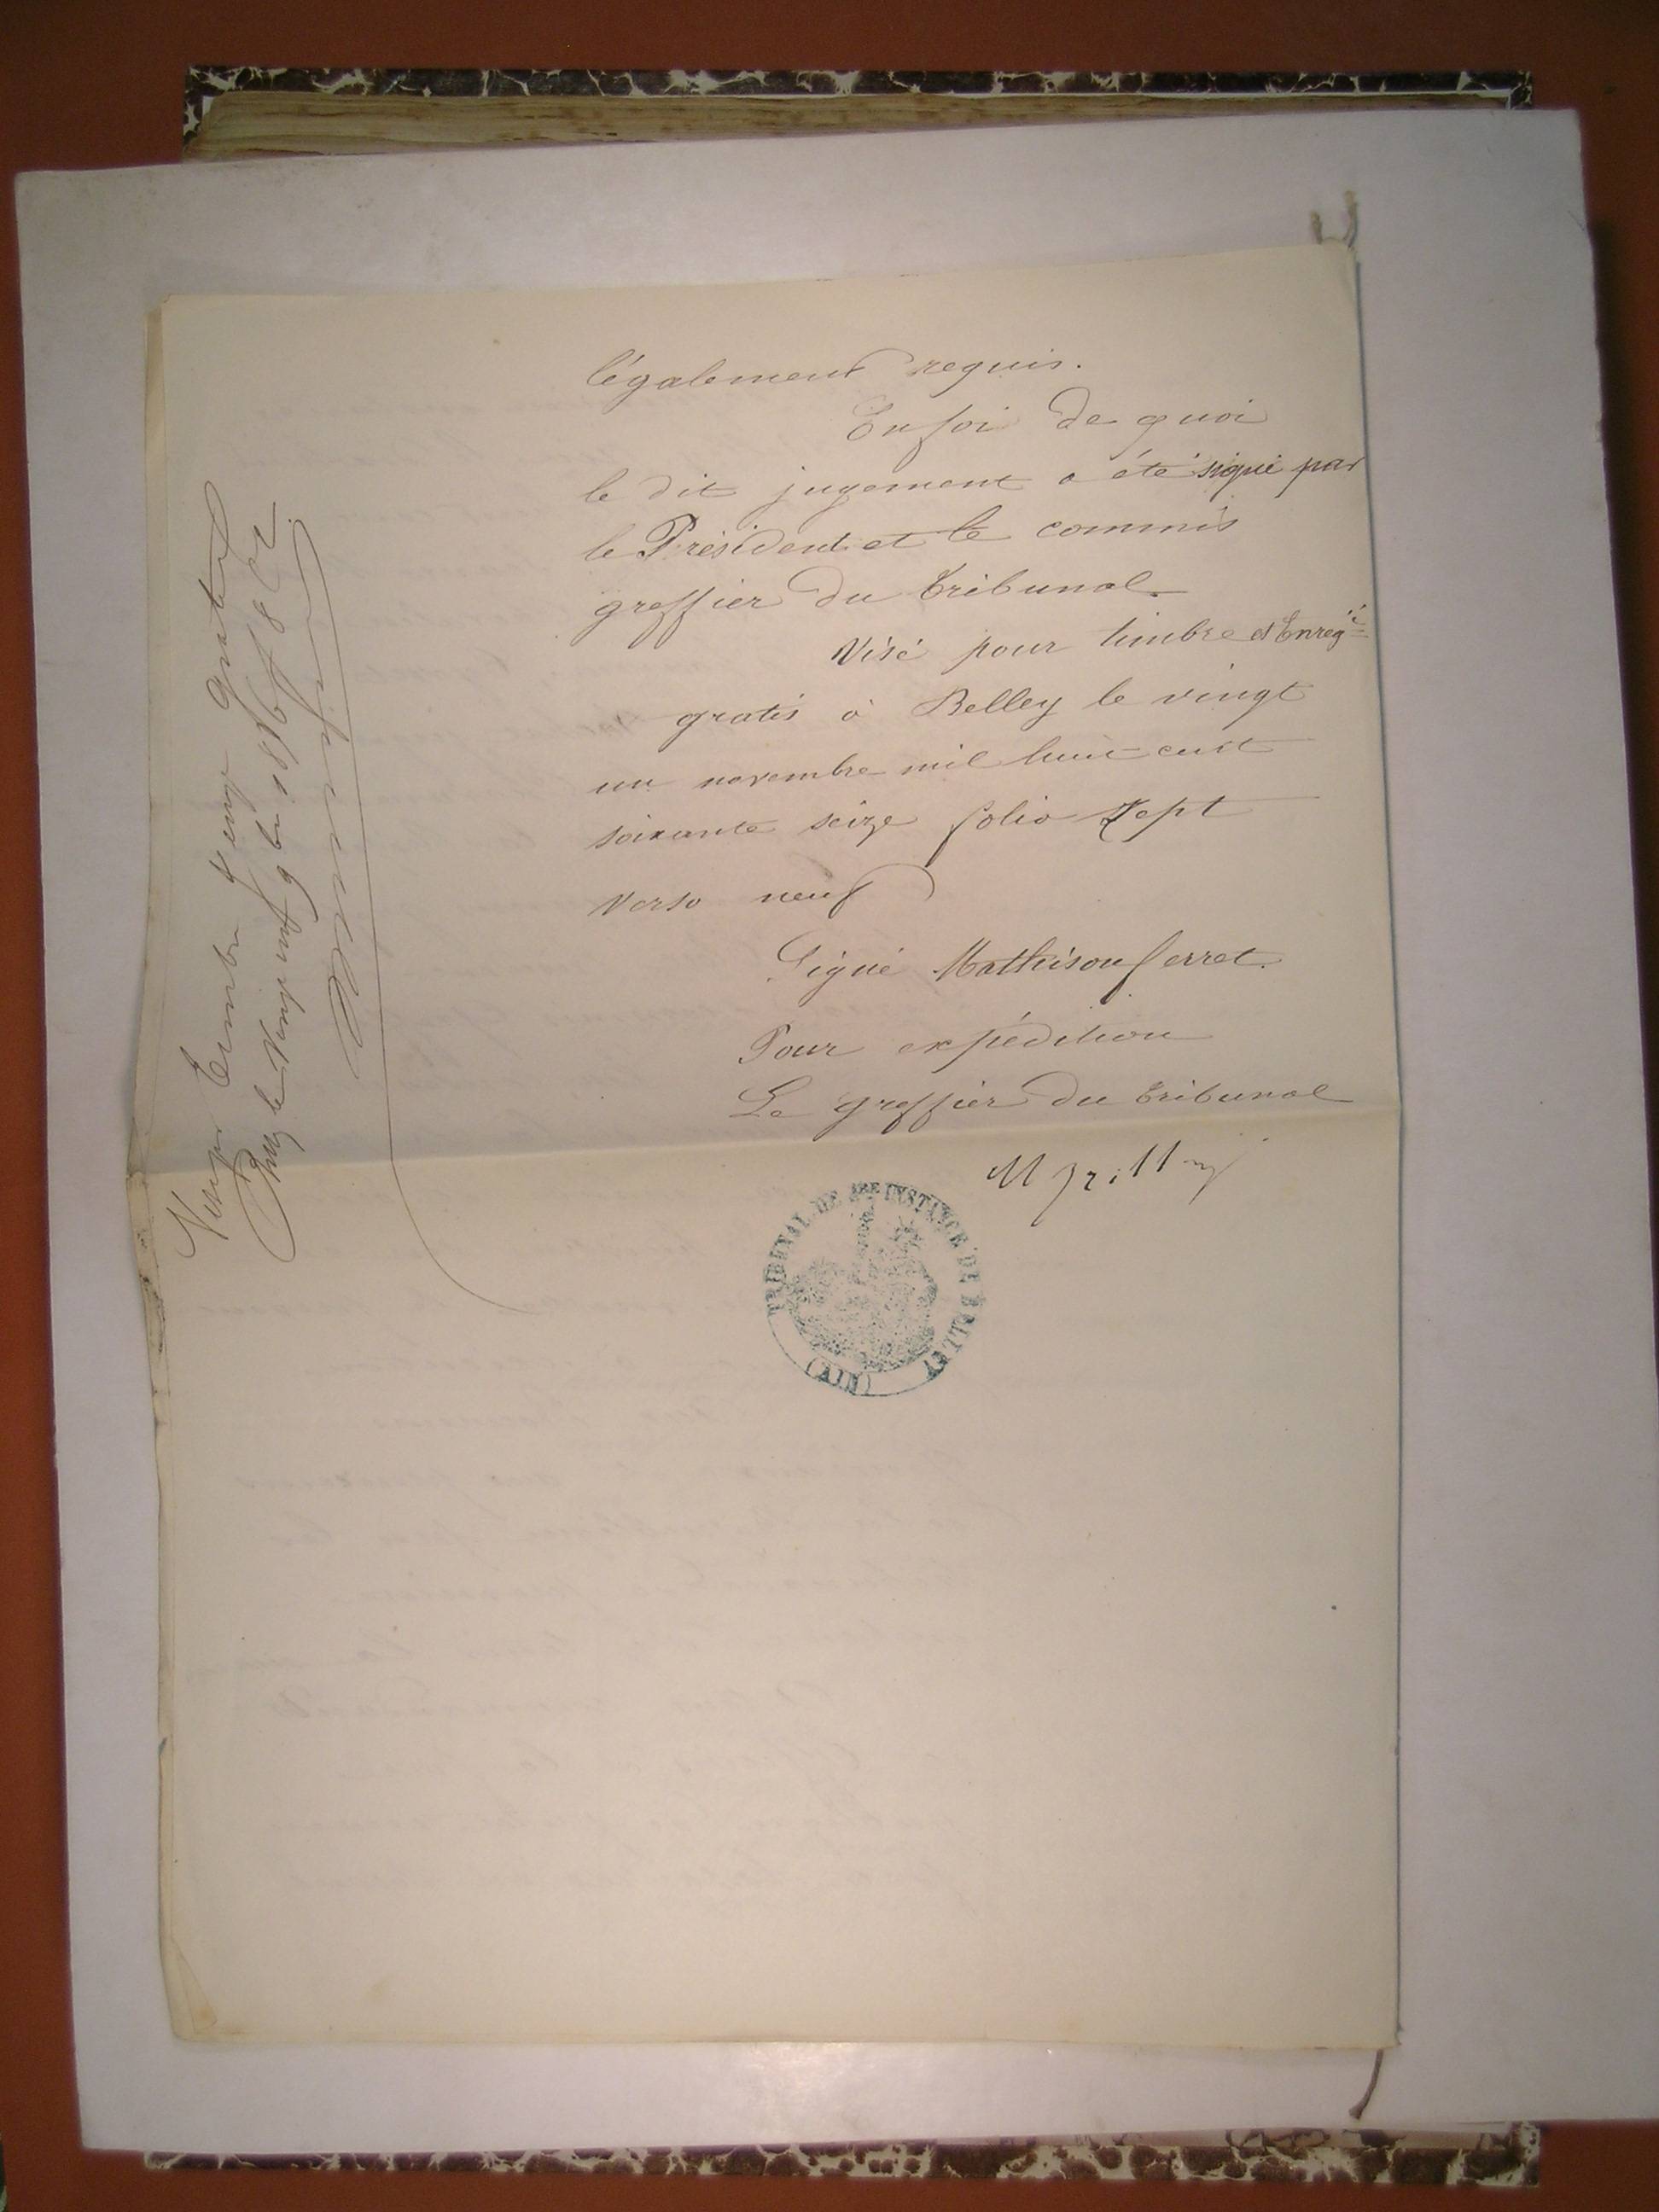 légalement requis.
En foi de quoi
le dit jugement a été signé par
le Président et le commis
greffier du tribunal.
Visé pour timbre et Enreg.é
gratis à Belley le vingt
un novembre mil huit cent
soixante seize folio sept
verso neuf
Signé Mathison ferret.
Pour expédition
Le greffier du tribunal
TRIBUNAL DE 1RE INSTANCE DE BELLEY
(AIN)
le Vingt neuf 9bre 1876 f 8